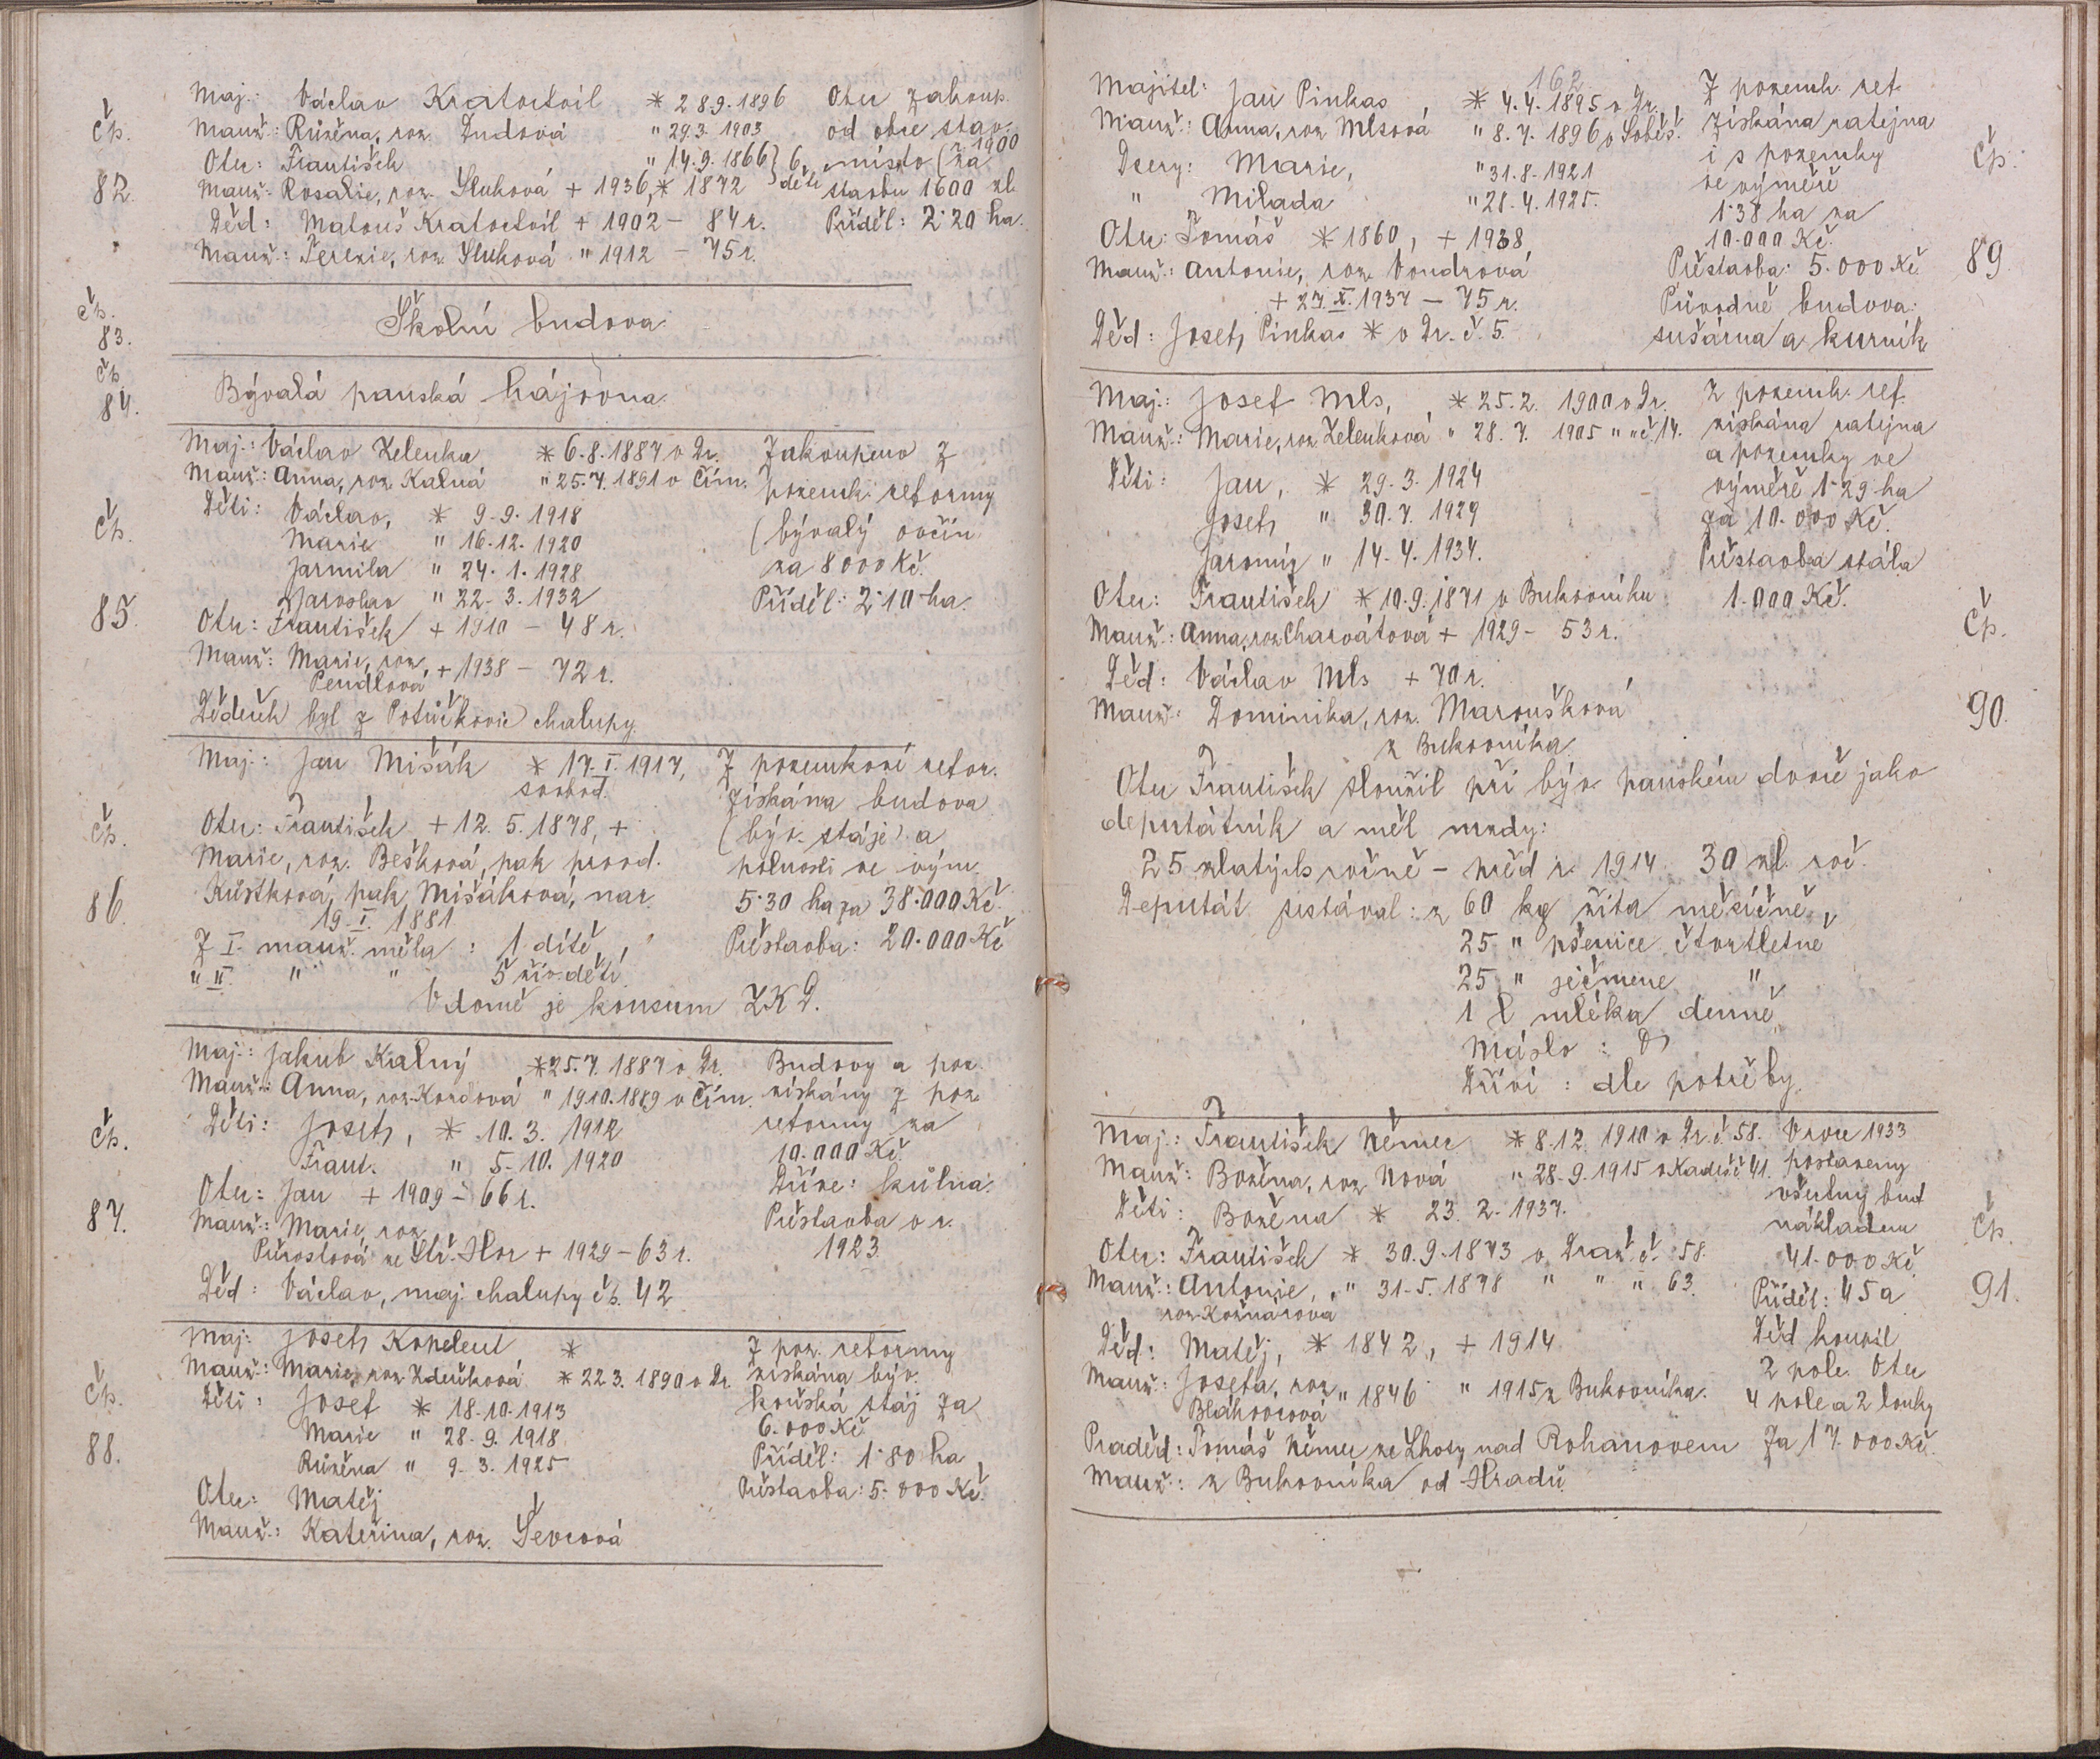 Maj.: Václav Kratochvíl * 28.9.1896 Otec zakoup.
Manž.: Růžena, roz. Dudová " 29.3. 1903 od obce stav.
Otec: František " 14.9.1866 } 6 místo (r. 1900 za
Čp. 82.
Manž.: Rosalie, roz. Sluková + 1936, * 1872 } dětí stavbu 1600 zl.
Děd: Matouš Kratochvíl + 1902 – 84 r. Příděl: 2·20 ha.
Manž.: Terezie, roz. Sluková " 1912 – 75 r.
Čp. 83.
Školní budova.
Čp. 84.
Bývalá panská hájovna.
Maj.: Václav Zelenka * 6.8.1887 v Dr. Zakoupeno z
Manž.: Anna, roz. Kalná " 25.7.1891 v Čím. pozemk. reformy
Děti: Václav, * 9.9.1918 (bývalý ovčín
Čp. 85.
Marie " 16.12.1920 za 8000 Kč.
Jarmila " 24.1.1928
Jaroslav " 22.3.1932 Příděl: 2·10 ha.
Otec: František + 1910 – 48 r.
Manž: Marie, roz. + 1938 – 72 r.
Pendlová
Dědeček byl z Potůčkovic chalupy.
Maj.: Jan Mišák * 17.I.1917, Z pozemkové refor.
svobod. získána budova
Čp. 86.
Otec: František, + 12.5.1878, + (býv. stáje) a
Marie, roz. Bešková, pak provd. polnosti ve vým.
Kůstková, pak Mišáková, nar. 5·30 ha za 38.000 Kč.
19.I.1881
Z I. manž. měla: 1 dítě, Přestavba: 20.000 Kč
" II. " " 5 živ. dětí.
V domě je konsum ZKD.
Maj.: Jakub Kalný * 25.7.1887 v Dr. Budovy a poz.
Manž.: Anna, roz. Kordová " 19.10.1889 v Čím. získány z poz.
Čp. 87.
Děti: Josef, * 10.3.1912 reformy za
Frant. " 5.10.1920 10.000 Kč.
Otec: Jan + 1909 – 66 r. Dříve: kůlna.
Manž.: Marie, roz. Přestavba v r.
ze Stř. Hor + 1929 – 63 r. 1923.
Děd: Václav, maj. chalupy čp. 42
Maj: Josef Kopelent * Z poz. reformy
Manž.: Marie, roz. Zdeňková * 22.3.1890 v Dr. získána býv.
Čp. 88.
Děti: Josef * 18.10.1913 koňská stáj za
Marie " 28.9.1918 6.000 Kč
Růžena " 9.3.1925 Příděl: 1·80 ha,
Otec: Matěj Přestavba: 5.000 Kč.
Manž.: Kateřina, roz. Ševcová
162
Majitel: Jan Pinkas, * 4.4.1895 v Dr., Z pozemk. ref.
Manž.: Anna, roz. Mlsová " 8.7.1896 v Soběš. získána ratejna
Čp. 89.
Dcery: Marie, " 31.8.1921 i s pozemky
" Milada " 28.4.1925. ve výměře
1·38 ha za
Otec: Tomáš * 1860, + 1938, 10.000 Kč.
Manž.: Antonie, roz. Vondrová Přestavba: 5.000 Kč
+ 27.X.1937 – 75 r. Původně budova:
Děd: Josef Pinkas * v Dr. č. 5. sušárna a kurník
Maj.: Josef Mls, * 25.2. 1900 v Dr. Z pozemk. ref.
Manž.: Marie, roz. Zelenková " 28.7. 1905 " " č. 14. získána ratejna
a pozemky ve
Děti: Jan, * 29.3.1924 výměře 1·29 ha
Josef " 30.7.1929 za 10.000 Kč.
Jaromír " 14.4.1934. Přestavba stála
Čp. 90.
Otec: František * 10.9.1871 v Bukovníku 1.000 Kč.
Manž.: Anna, roz. Charvátová + 1929 – 53 r.
Děd: Václav Mls + 70 r.
Manž: Dominika, roz. Maroušková
z Bukovníka.
Otec František sloužil při býv. panském dvoře jako
deputátník a měl mzdy:
25 zlatých ročně – před r. 1914 30 zl. roč.
Deputát sestával: z 60 kg žita měsíčně,
25 " pšenice čtvrtletně
25 " ječmene "
1 l mléka denně,
máslo:
Dříví: dle potřeby.
Maj.: František Němec * 8.12.1910 v Dr. č. 58. V roce 1933
Manž: Božena, roz. Nová " 28.9.1915 v Kadešě 41. postaveny
Čp. 91.
Děti: Božena * 23.2.1937. všechny bud.
nákladem
Otec: František * 30.9.1873 v Draž. č. 58. 41.000 Kč
Manž.: Antonie, " 31.5.1878 " " " 63. Příděl: 45 a
roz. Kožnarová
Děd: Matěj, * 1842, + 1914 Děd koupil
Manž: Josefa, roz. " 1846 " 1915 z Bukovníka. 2 pole. Otec
Bláhovcová 4 pole a 2 louky
Praděd: Tomáš Němec ze Lhoty nad Rohanovem za 17.000 Kč.
Manž.: z Bukovníka od Hradů